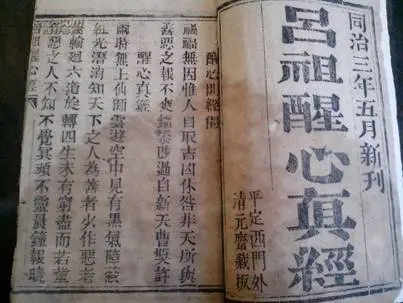 同治三年五月新刊
呂祖醒心真經
平定西門外
清元齋藏板
醒心開經偈
禍福無因惟人自取吉凶休咎非天所與
善惡之報不爽錙銖悔過自新天曹奬許
醒心真經
爾時無上仙師雲遊空中見有黑氣障蔽
紅光潛消知天下之人為善者少作惡者
多輪廻六道旋轉四生未有窮盡而若輩
惡之人不知不覺冥頑不靈晨鐘報曉